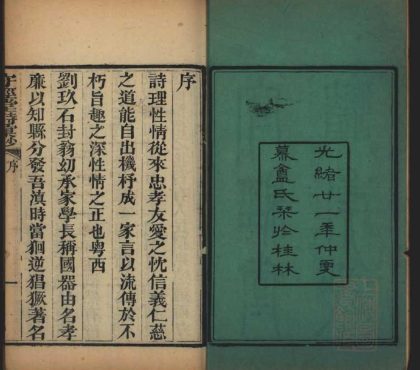 光緒廿一秊仲夏
慕盦氏栞於桂林
序
詩理性情從來忠孝友愛之忱信義仁慈
之道能自出機杼成一家言以流傳於不
朽旨趣之深性情之正也粤西
劉玖石封翁幼承家學長稱國器由名孝
廉以知縣分發吾滇時當徊逆猖獗著名
守經堂詩彙鈔 序 一